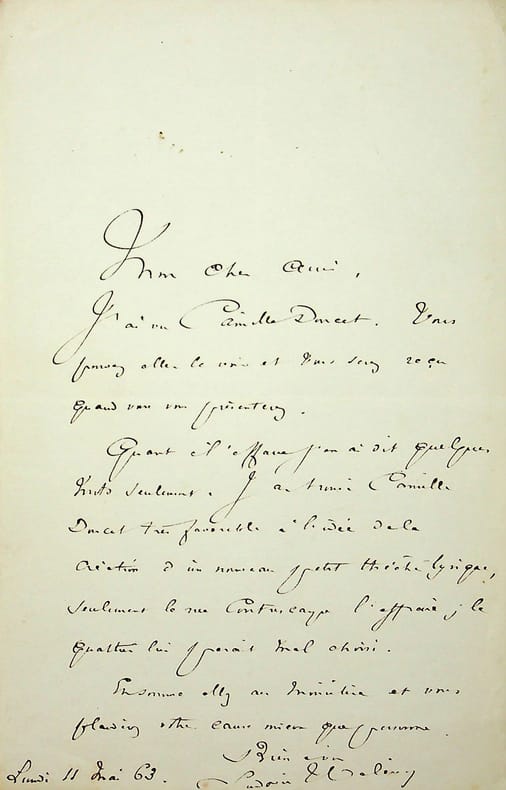 Mon cher ami,
J'ai vu Camille Doucet. Vous
pouvez aller le voir et vous serez reçu
quand vous vous présenterez.
Quant à l'affaire j'en ai dit quelques
mots seulement. J'ai trouvé Camille
Doucet très favorable à l'idée de la
création d'un nouveau petit théâtre lyrique,
seulement la rue Contrescarpe l'effraie ; le
quartier lui paraît mal choisi.
En somme allez au Ministère et vous
plaiderez votre cause mieux que personne.
Bien à vous
Ludovic Halévy
Lundi 11 Mai 63.